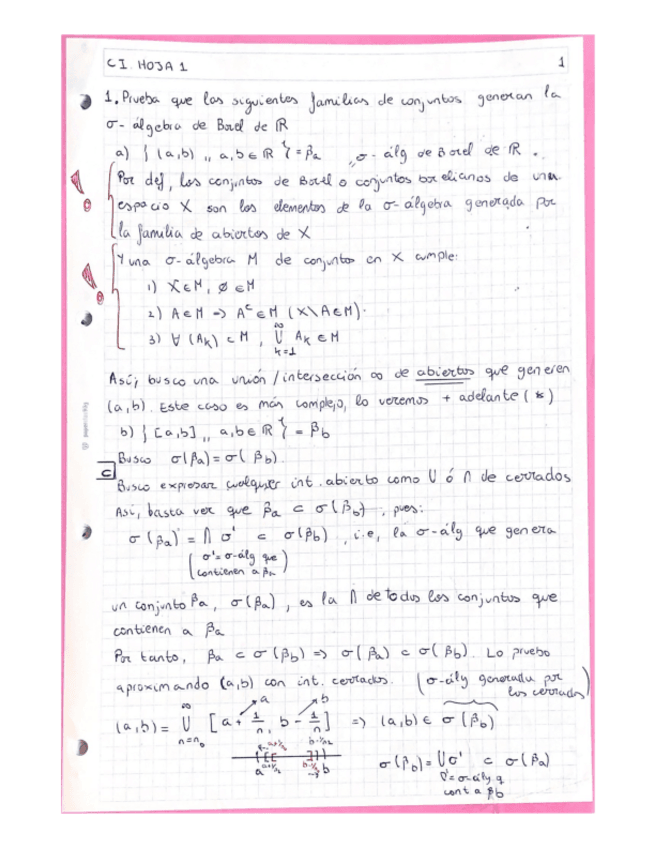 CI HOJA 1 1
1. Prueba que las siguientes familias de conjuntos generan la
σ-álgebra de Borel de ℝ
a) { (a,b) ,, a,b ∈ ℝ } = βa σ-álg de Borel de ℝ.
Por def, los conjuntos de Borel o conjuntos borelianos de un
espacio X son los elementos de la σ-álgebra generada por
la familia de abiertos de X
Y una σ-álgebra M de conjuntos en X cumple:
1) X ∈ M, ∅ ∈ M
2) A ∈ M => Aᶜ ∈ M (X\A ∈ M).
3) ∀ (Ak) ⊂ M, ∞ ∪ k=1 Ak ∈ M
Así, busco una unión/intersección ∞ de abiertos que generen
(a,b). Este caso es más complejo, lo veremos + adelante (*)
b) { [a,b] ,, a,b ∈ ℝ } = βb
Busco σ(βa) = σ(βb).
C
Busco expresar cualquier int. abierto como ∪ ó ∩ de cerrados
Así, basta ver que βa ⊂ σ(βb), pues:
σ(βa) = ∩ σ' ⊂ σ(βb), i.e, la σ-álg que genera
(σ' = σ-álg que
contienen a βa)
un conjunto βa, σ(βa), es la ∩ de todos los conjuntos que
contienen a βa
Por tanto, βa ⊂ σ(βb) => σ(βa) ⊂ σ(βb). Lo pruebo
aproximando (a,b) con int. cerrados. (σ-álg generada por
los cerrados)
(a,b) = ∞ ∪ n=n₀ [a + 1/n, b - 1/n] => (a,b) ∈ σ(βb)
a b
a b
σ(βb) = ∪σ' ⊂ σ(βa)
σ' = σ-álg q
cont a βb